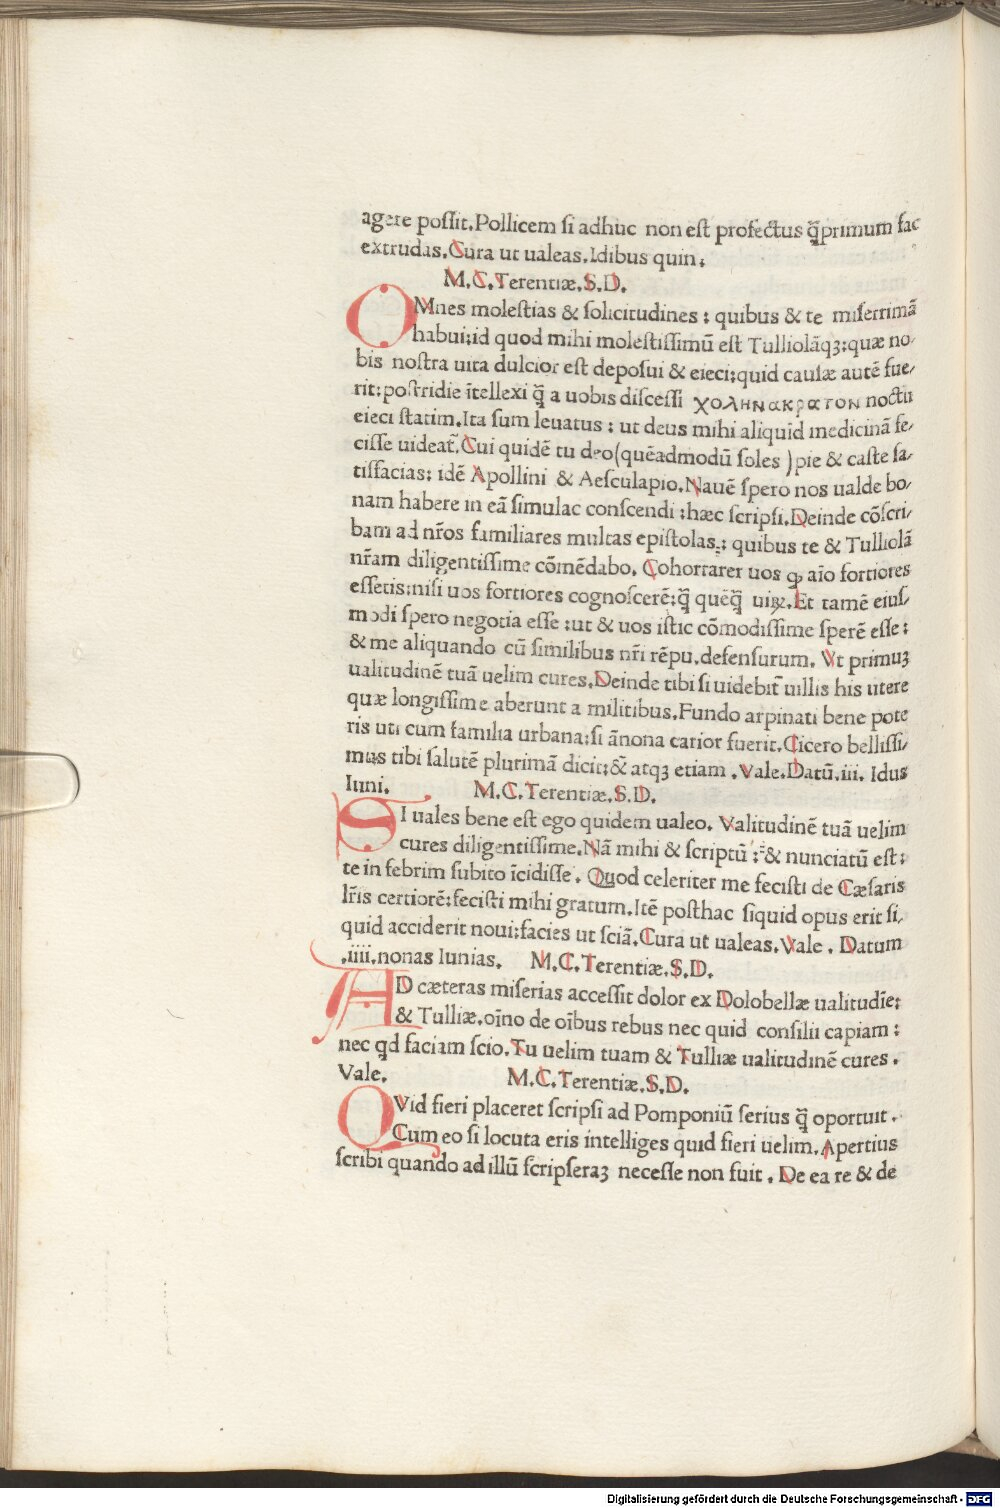 agere poſſit.Pollicem ſi adhuc non eſt profectus q̃primum fac
extrudas.Cura ut ualeas.Idibus quin:
M.C.Terentiæ.S.D.
OMnes moleſtias & ſolicitudines : quibus & te miſerrimã
habui:id quod mihi moleſtiſſimũ eſt Tulliolãqꝫ:quæ no/
bis noſtra uita dulcior eſt depoſui & eieci:quid cauſæ autẽ fue/
rit:poſtridie ĩtellexi q̃ a uobis diſceſſi χοληνακρατον noctu
eieci ſtatim.Ita ſum leuatus : ut deus mihi aliquid medicinã fe/
ciſſe uideat̃.Cui quidẽ tu deo(quẽadmodũ ſoles )pie & caſte ſa/
tiſfacias: idẽ Apollini & Aeſculapio.Nauẽ ſpero nos ualde bo/
nam habere in eã ſimulac conſcendi :hæc ſcripſi.Deinde cõſcri/
bam ad nr̃os familiares multas epiſtolas: quibus te & Tulliolã
nr̃am diligentiſſime cõmẽdabo. Cohortarer uos ꝙ aĩo fortiores
eſſetis:niſi uos fortiores cognoſcerẽ:q̃ quẽq̃ uiꝝ.Et tamẽ eiuſ/
modi ſpero negotia eſſe :ut & uos iſtic cõmodiſſime ſperẽ eſſe:
& me aliquando cũ ſimilibus nr̃i rẽpu.defenſurum. Vt primuꝫ
ualitudinẽ tuã uelim cures.Deinde tibi ſi uidebit̃ uillis his utere
quæ longiſſime aberunt a militibus.Fundo arpinati bene pote
ris uti cum familia urbana:ſi ãnona carior fuerit.Cicero belliſſi/
mus tibi ſalutẽ plurimã dicit:& atqꝫ etiam .Vale.Datũ.iii. Idus
Iuni. M.C.Terentiæ.S.D.
SI uales bene eſt ego quidem ualeo. Valitudinẽ tuã uelim
cures diligentiſſime.Nã mihi & ſcriptũ : & nunciatũ eſt:
te in febrim ſubito ĩcidiſſe. Quod celeriter me feciſti de Cæſaris
lr̃is certiorẽ:feciſti mihi gratum.Itẽ poſthac ſiquid opus erit ſi/
quid acciderit noui:facies ut ſciã.Cura ut ualeas.Vale. Datum
.iiii.nonas Iunias. M.C.Terentiæ.S.D.
AD cæteras miſerias acceſſit dolor ex Dolobellæ ualitudĩe:
& Tulliæ.oĩno de oĩbus rebus nec quid conſilii capiam :
nec qd faciam ſcio.Tu uelim tuam & Tulliæ ualitudinẽ cures.
Vale. M.C.Terentiæ.S.D.
QVid fieri placeret ſcripſi ad Pomponiũ ſerius q̃ oportuit.
Cum eo ſi locuta eris intelliges quid fieri uelim.Apertius
ſcribi quando ad illũ ſcripſeraꝫ neceſſe non fuit. De ea re & de
Digitalisierung gefördert durch die Deutsche Forschungsgemeinschaft - DFG